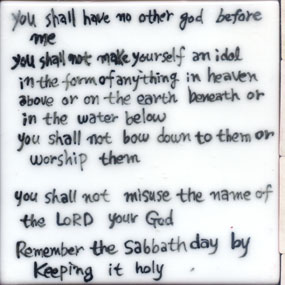 you shall have no other god before
me
you shall not make yourself an idol
in the form of anything in heaven
above or on the earth beneath or
in the water below
you shall not bow down to them or
worship them
you shall not misuse the name of
the LORD your God
Remember the Sabbath day by
Keeping it holy